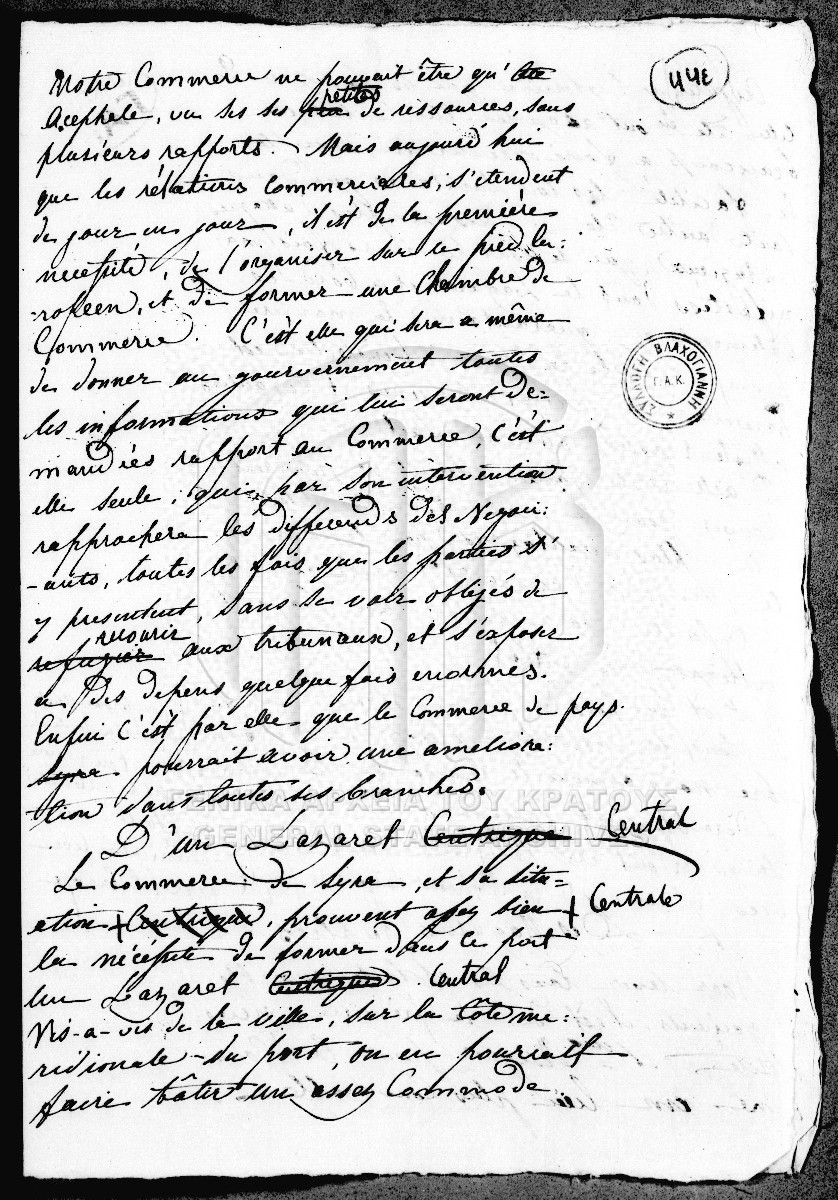 442
Notre Commerce ne pouvait être qu'
Acephale, vu ses ses petites de ressources, sans
plusieurs rapports. Mais aujourd hui
que les rélations Commerciales, s'etendent
de jour en jour, il est de la première
necessité, de l'organiser sur le pied Eu:
-ropéen, et de former une Chambre de
Commerce. C'est elle qui sera a même
de donner au gouvernement toutes
les informations qui lui seront de=
mandées rapport au Commerce, c'est
elle seule, qui par son intervention
rapprochera les differends des Negoci:
-ants, toutes les fois que les parties s'
y presentent, sans se voir obligés de
refugier recourir aux tribunaux, et s'exposer
a des depens quelque fois enormes.
Enfin c'est par elle que le Commerce de pays
Syra pourrait avoir une ameliora:
tion dans toutes ses branches.
D'un Lazaret Centrique Central
Le Commerce de Syra, et sa situ=
ation + Centrique, prouvent assez bien + Centrale
la nécéssité de former dans ce port
un Lazaret Centrique Central
Vis-a-vis de la ville, sur la Côte me:
ridionale du port, on en pourrait
faire bâtir un assez Commode
ΣΥΛΛΟΓΗ ΒΛΑΧΟΓΙΑΝΝΗ
Γ.Α.Κ.
ΓΕΝΙΚΑ ΑΡΧΕΙΑ ΤΟΥ ΚΡΑΤΟΥΣ
GENERAL STATE ARCHIVES